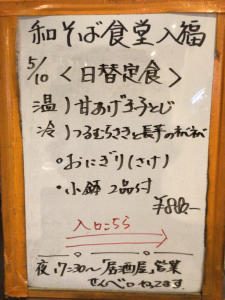 和そば食堂入福
5/10 <日替定食>
温)甘あげ玉子とじ
冷)つるむらさきと長芋の
・おにぎり(さけ)
・小鉢 2品付
入口こちら
夜17:30〜「居酒屋」営業
せんべロ やってます